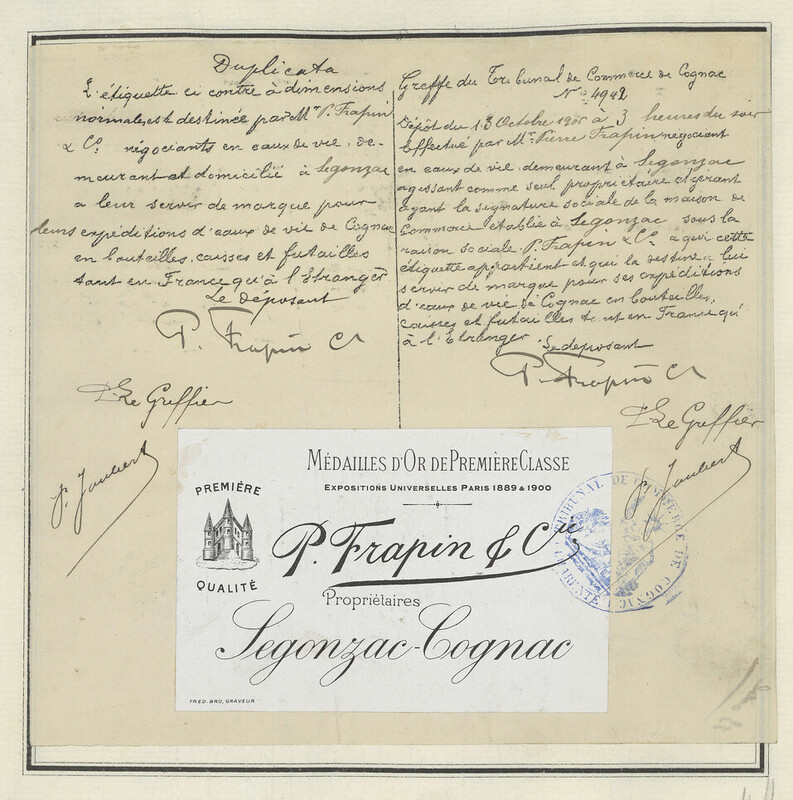 Duplicata
L'étiquette ci contre à dimensions
normales est destinée par Mr P. Frapin
& Cie négociants en eaux de vie, de-
meurant et domicilié à Segonzac
a leur servir de marque pour
leurs expéditions d'eaux de vie de Cognac
en bouteilles, caisses et futailles
tant en France qu'à l'Etranger
Le déposant
P. Frapin & Cie
P. Le Greffier
P. Joubert
Greffe du Tribunal de Commerce de Cognac
No 4942
Dépôt du 13 Octobre à 3 heures du soir
Effectué par Mr Pierre Frapin négociant
en eaux de vie, demeurant à Segonzac
agissant comme seul propriétaire et gérant
ayant la signature sociale de la maison de
Commerce établie à Segonzac sous la
raison sociale P. Frapin & Cie a qui cette
étiquette appartient et qui la destine a lui
servir de marque pour ses expéditions
d'eaux de vie de Cognac en bouteilles,
caisses et futailles tant en France qu'
à l'Etranger
Le déposant
P. Frapin & Cie
P. Le Greffier
P. Joubert
MÉDAILLES D'OR DE PREMIÈRE CLASSE
EXPOSITIONS UNIVERSELLES PARIS 1889 & 1900
PREMIÈRE
QUALITÉ
P. Frapin & Cie
Propriétaires
Segonzac-Cognac
FRED. BRU, GRAVEUR
TRIBUNAL DE COMMERCE DE COGNAC
CHARENTE